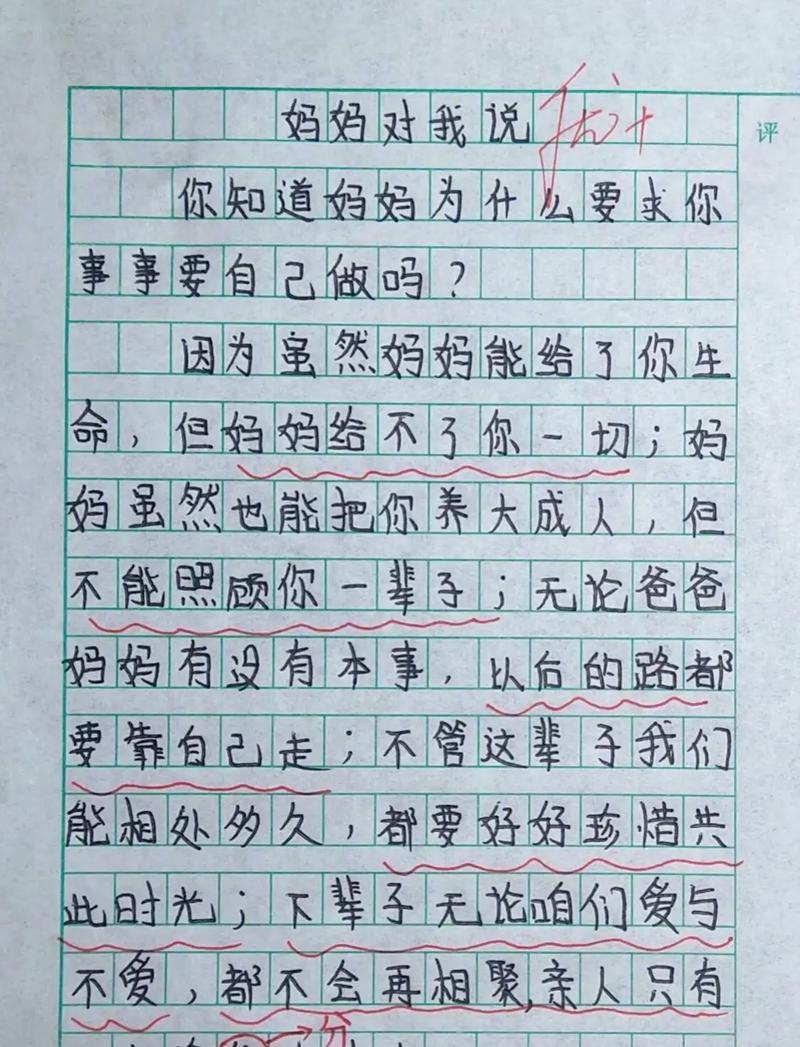 妈妈对我说 优+
评
你知道妈妈为什么要求你
事事要自己做吗？
因为虽然妈妈能给了你生
命，但妈妈给不了你一切；妈
妈虽然也能把你养大成人，但
不能照顾你一辈子；无论爸爸
妈妈有没有本事，以后的路都
要靠自己走；不管这辈子我们
能相处多久，都要好好珍惜共
此时光；下辈子无论咱们爱与
不爱，都不会再相聚，亲人只有
分